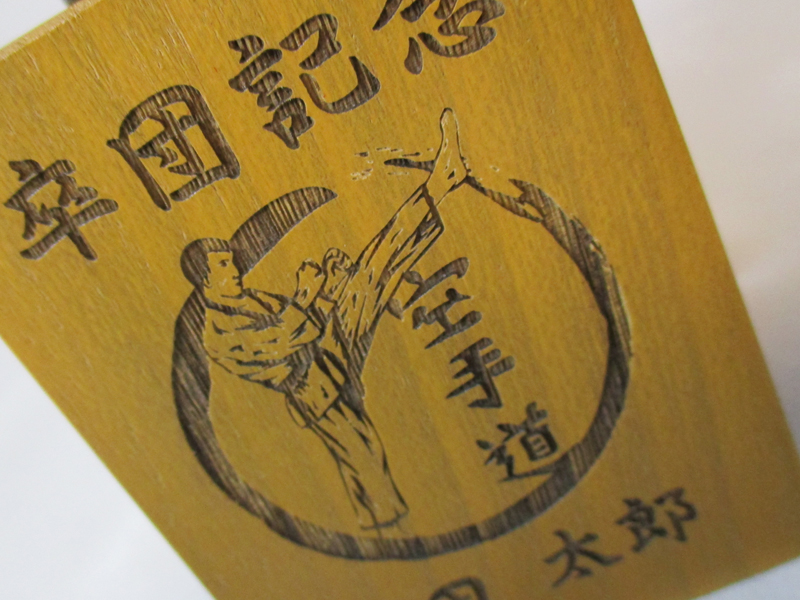 卒団記念
空手道
太郎